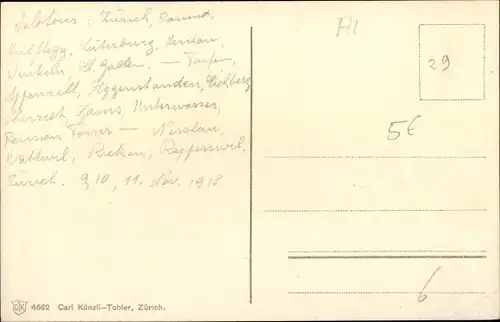 Velotour: Zürich,
Hulftegg, Lütisburg, Herisau,
Winkeln, St. Gallen. — Teufen,
Appenzell, Eggenstanden, Eichberg
Oberriet, Gams, Unterwasser,
Pension Forrer — Nesslau,
Wattwil, Ricken, Rapperswil,
Zürich. 9, 10, 11. Nov. 1918
A1
29
5€
6
4662 Carl Künzli-Tobler, Zürich.